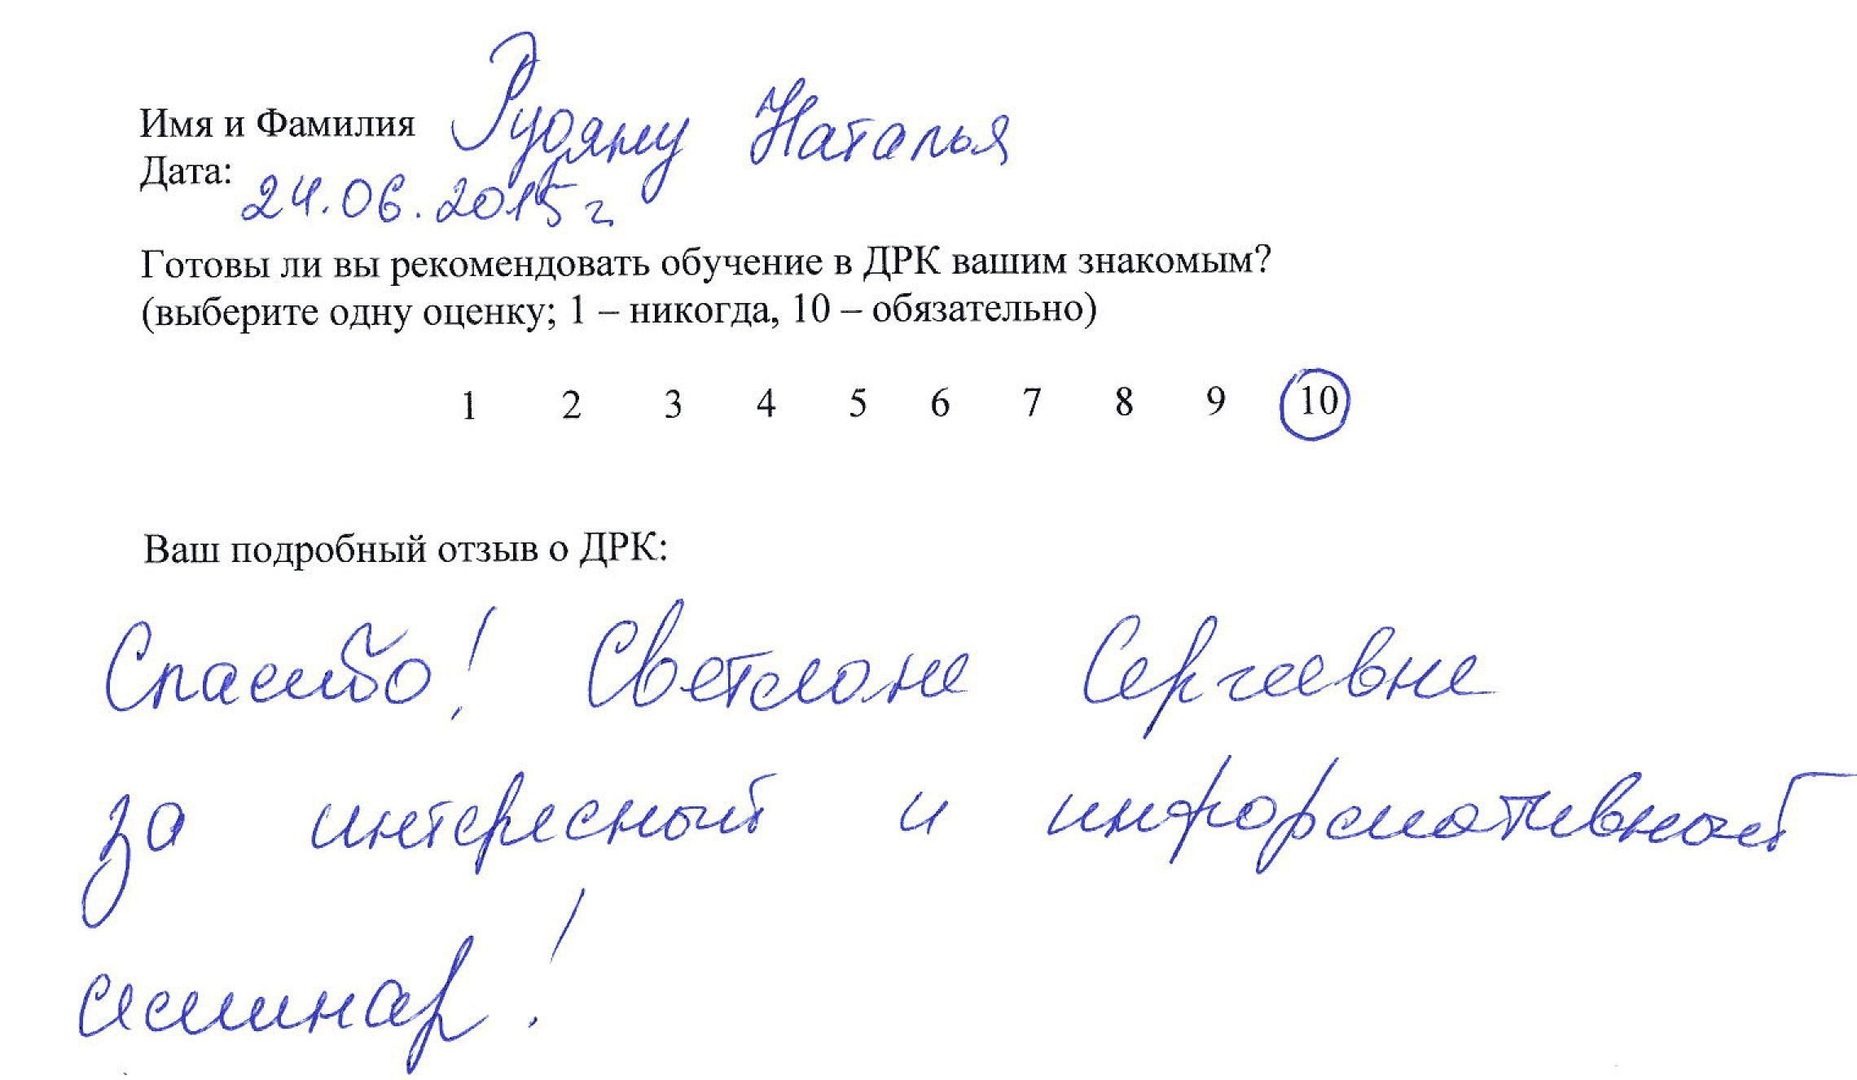 Имя и Фамилия Рудяму Наталья
Дата: 24.06.2015 г
Готовы ли вы рекомендовать обучение в ДРК вашим знакомым?
(выберите одну оценку; 1 – никогда, 10 – обязательно)
1 2 3 4 5 6 7 8 9 10
Ваш подробный отзыв о ДРК:
Спасибо! Светлане Сергеевне
за интересный и информативный
семинар!